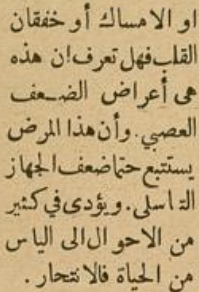 او الامساك أو خفقان
القلب فهل تعرف ان هذه
هى أعراض الضعف
العصبي . وأن هذا المرض
يستتبع حتما ضعف الجهاز
التاسلى . ويؤدى فى كثير
من الاحوال الى الياس
من الحياة فالانتحار .